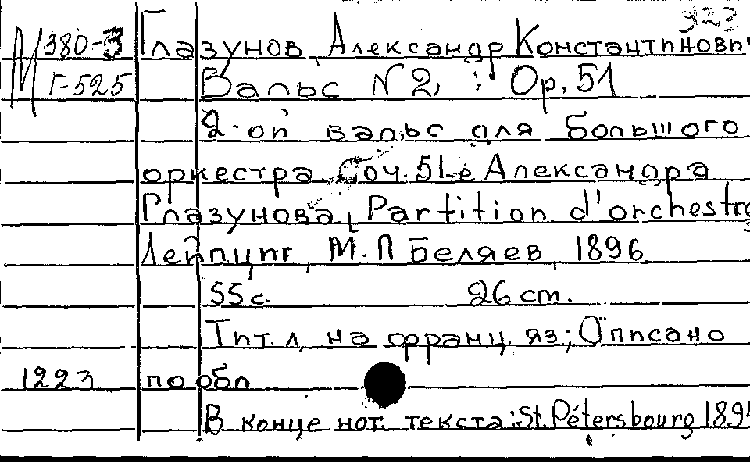 922
М 380-3 Глазунов, Александр Константинович
Г-525 Вальс N2, Op. 51
2-ой вальс для большого
оркестра Соч. 51-е Александра
Глазунова, Partition d'orchestre
Лейпциг, М. П Беляев, 1896
55 с. 26 cm.
Тит. л. на франц. яз; Описано
1223 по обл
В конце нот. текста: St. Pétersbourg